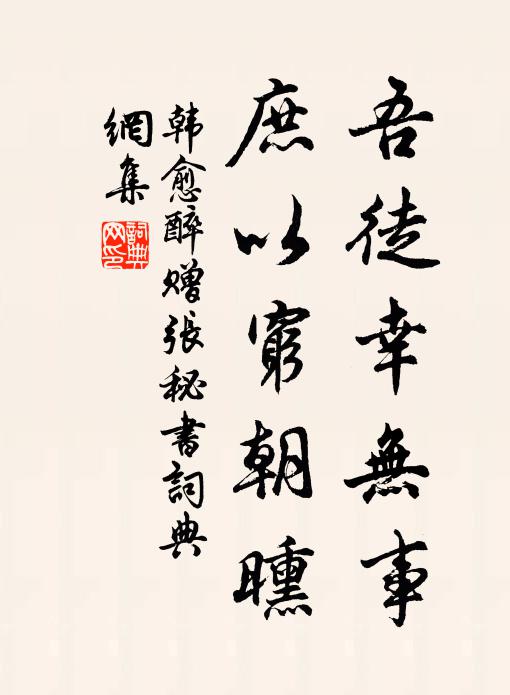 吾徒幸無事
庶以窮朝曛
韩愈醉赠張秘書詞典
網集
詞典
网印